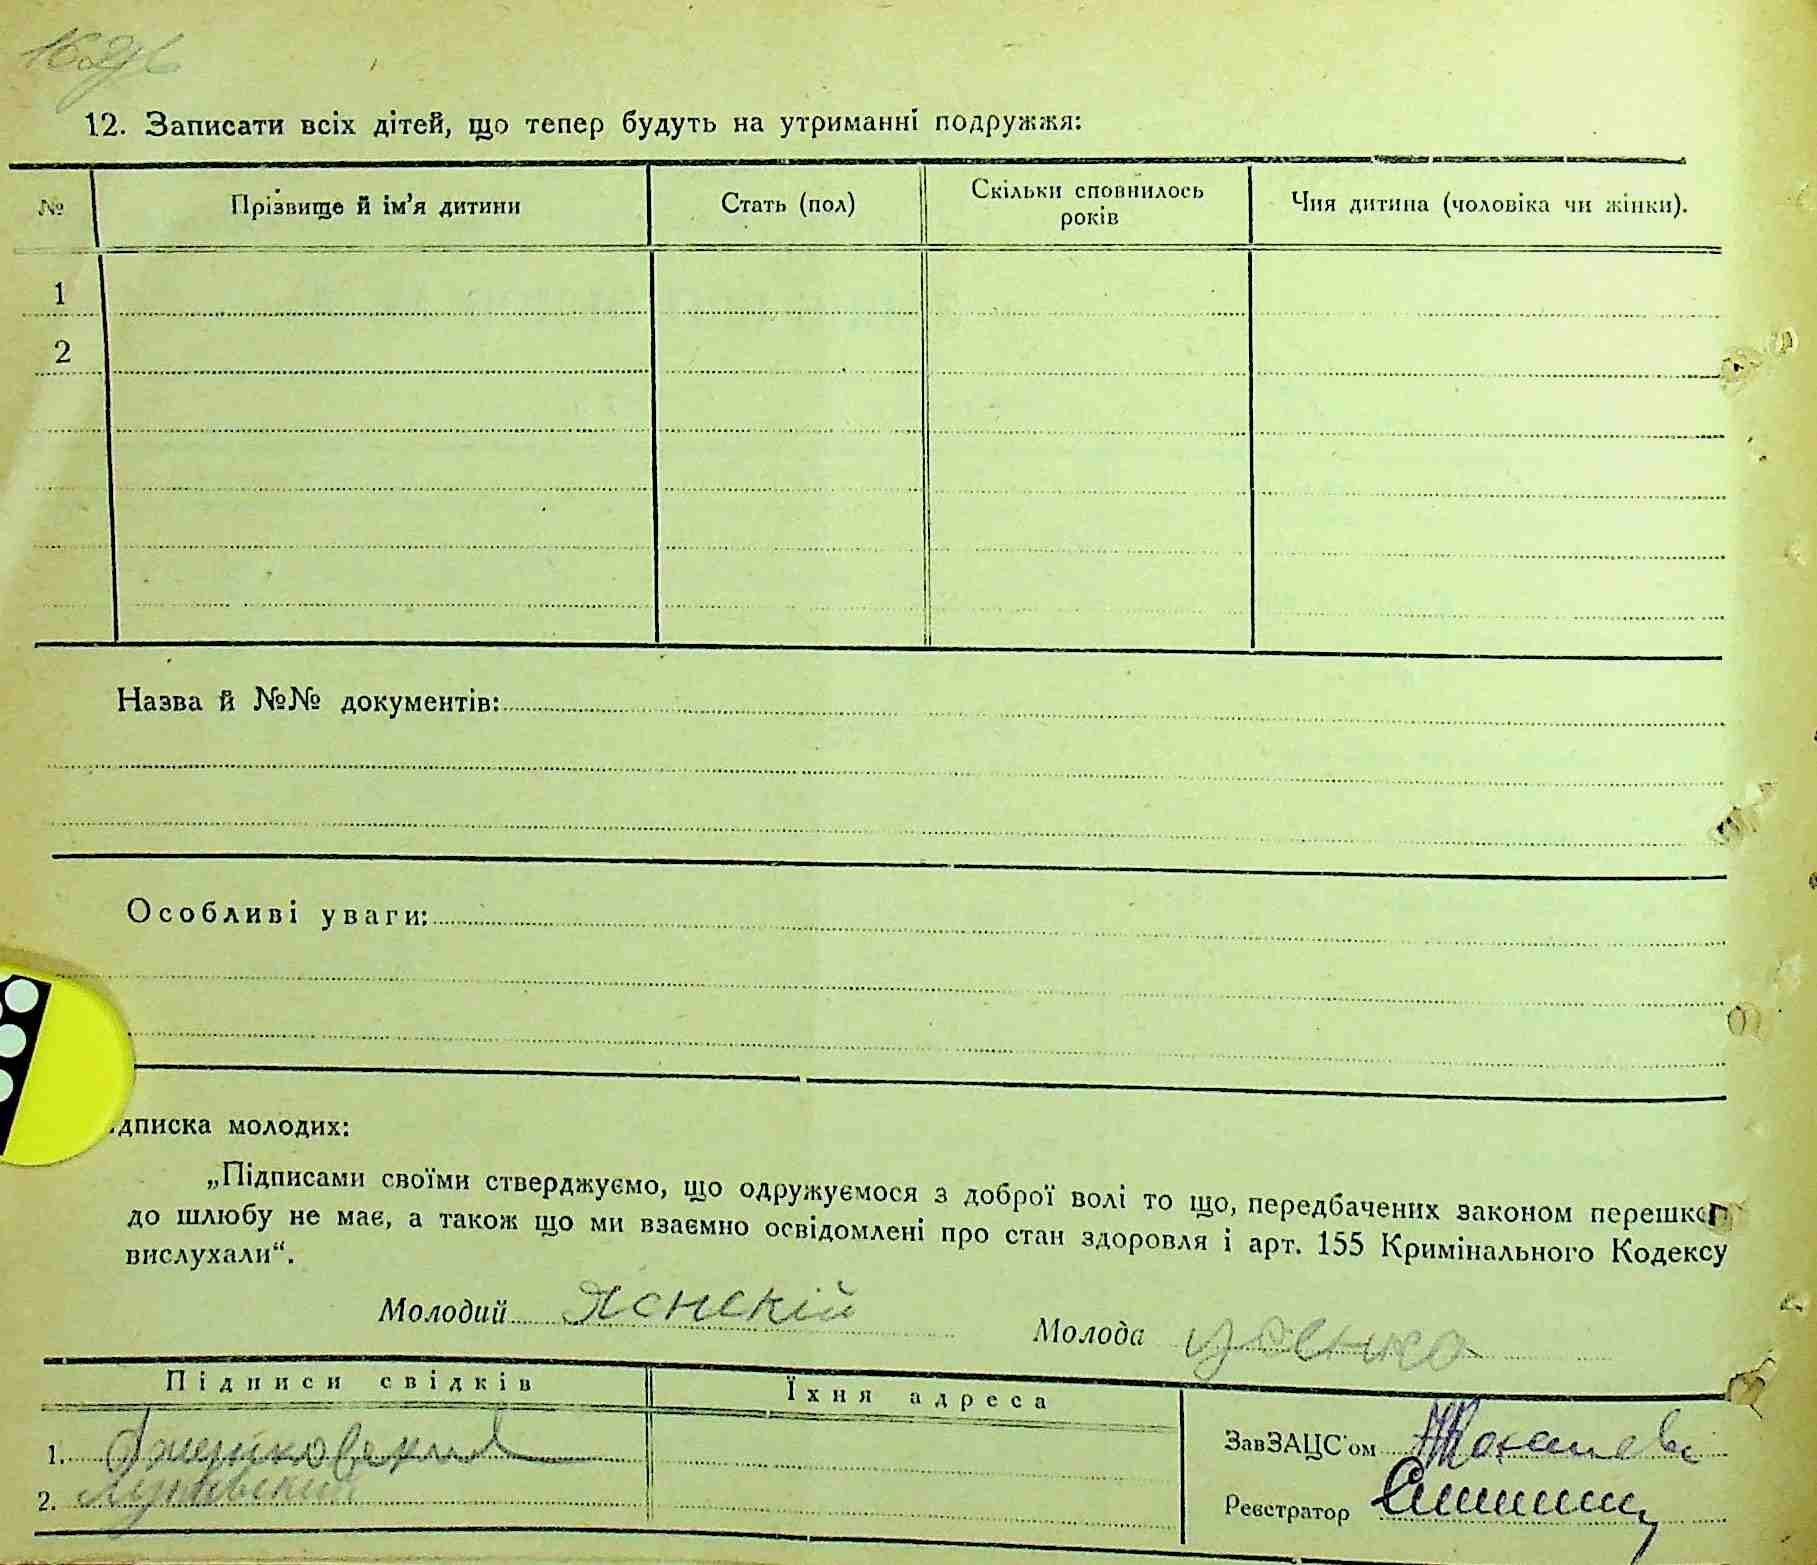 12. Записати всіх дітей, що тепер будуть на утриманні подружжя:
№ Прізвище й ім'я дитини Стать (пол) Скільки сповнилось років Чия дитина (чоловіка чи жінки).
1
2
Назва й №№ документів:
Особливі уваги:
дписка молодих:
„Підписами своїми стверджуємо, що одружуємося з доброї волі то що, передбачених законом перешкоп
до шлюбу не має, а також що ми взаємно освідомлені про стан здоровля і арт. 155 Кримінального Кодексу
вислухали“.
Молодий Яснскій
Молода
Підписи свідків Їхня адреса
1.
ЗавЗАЦС'ом
2.
Реєстратор